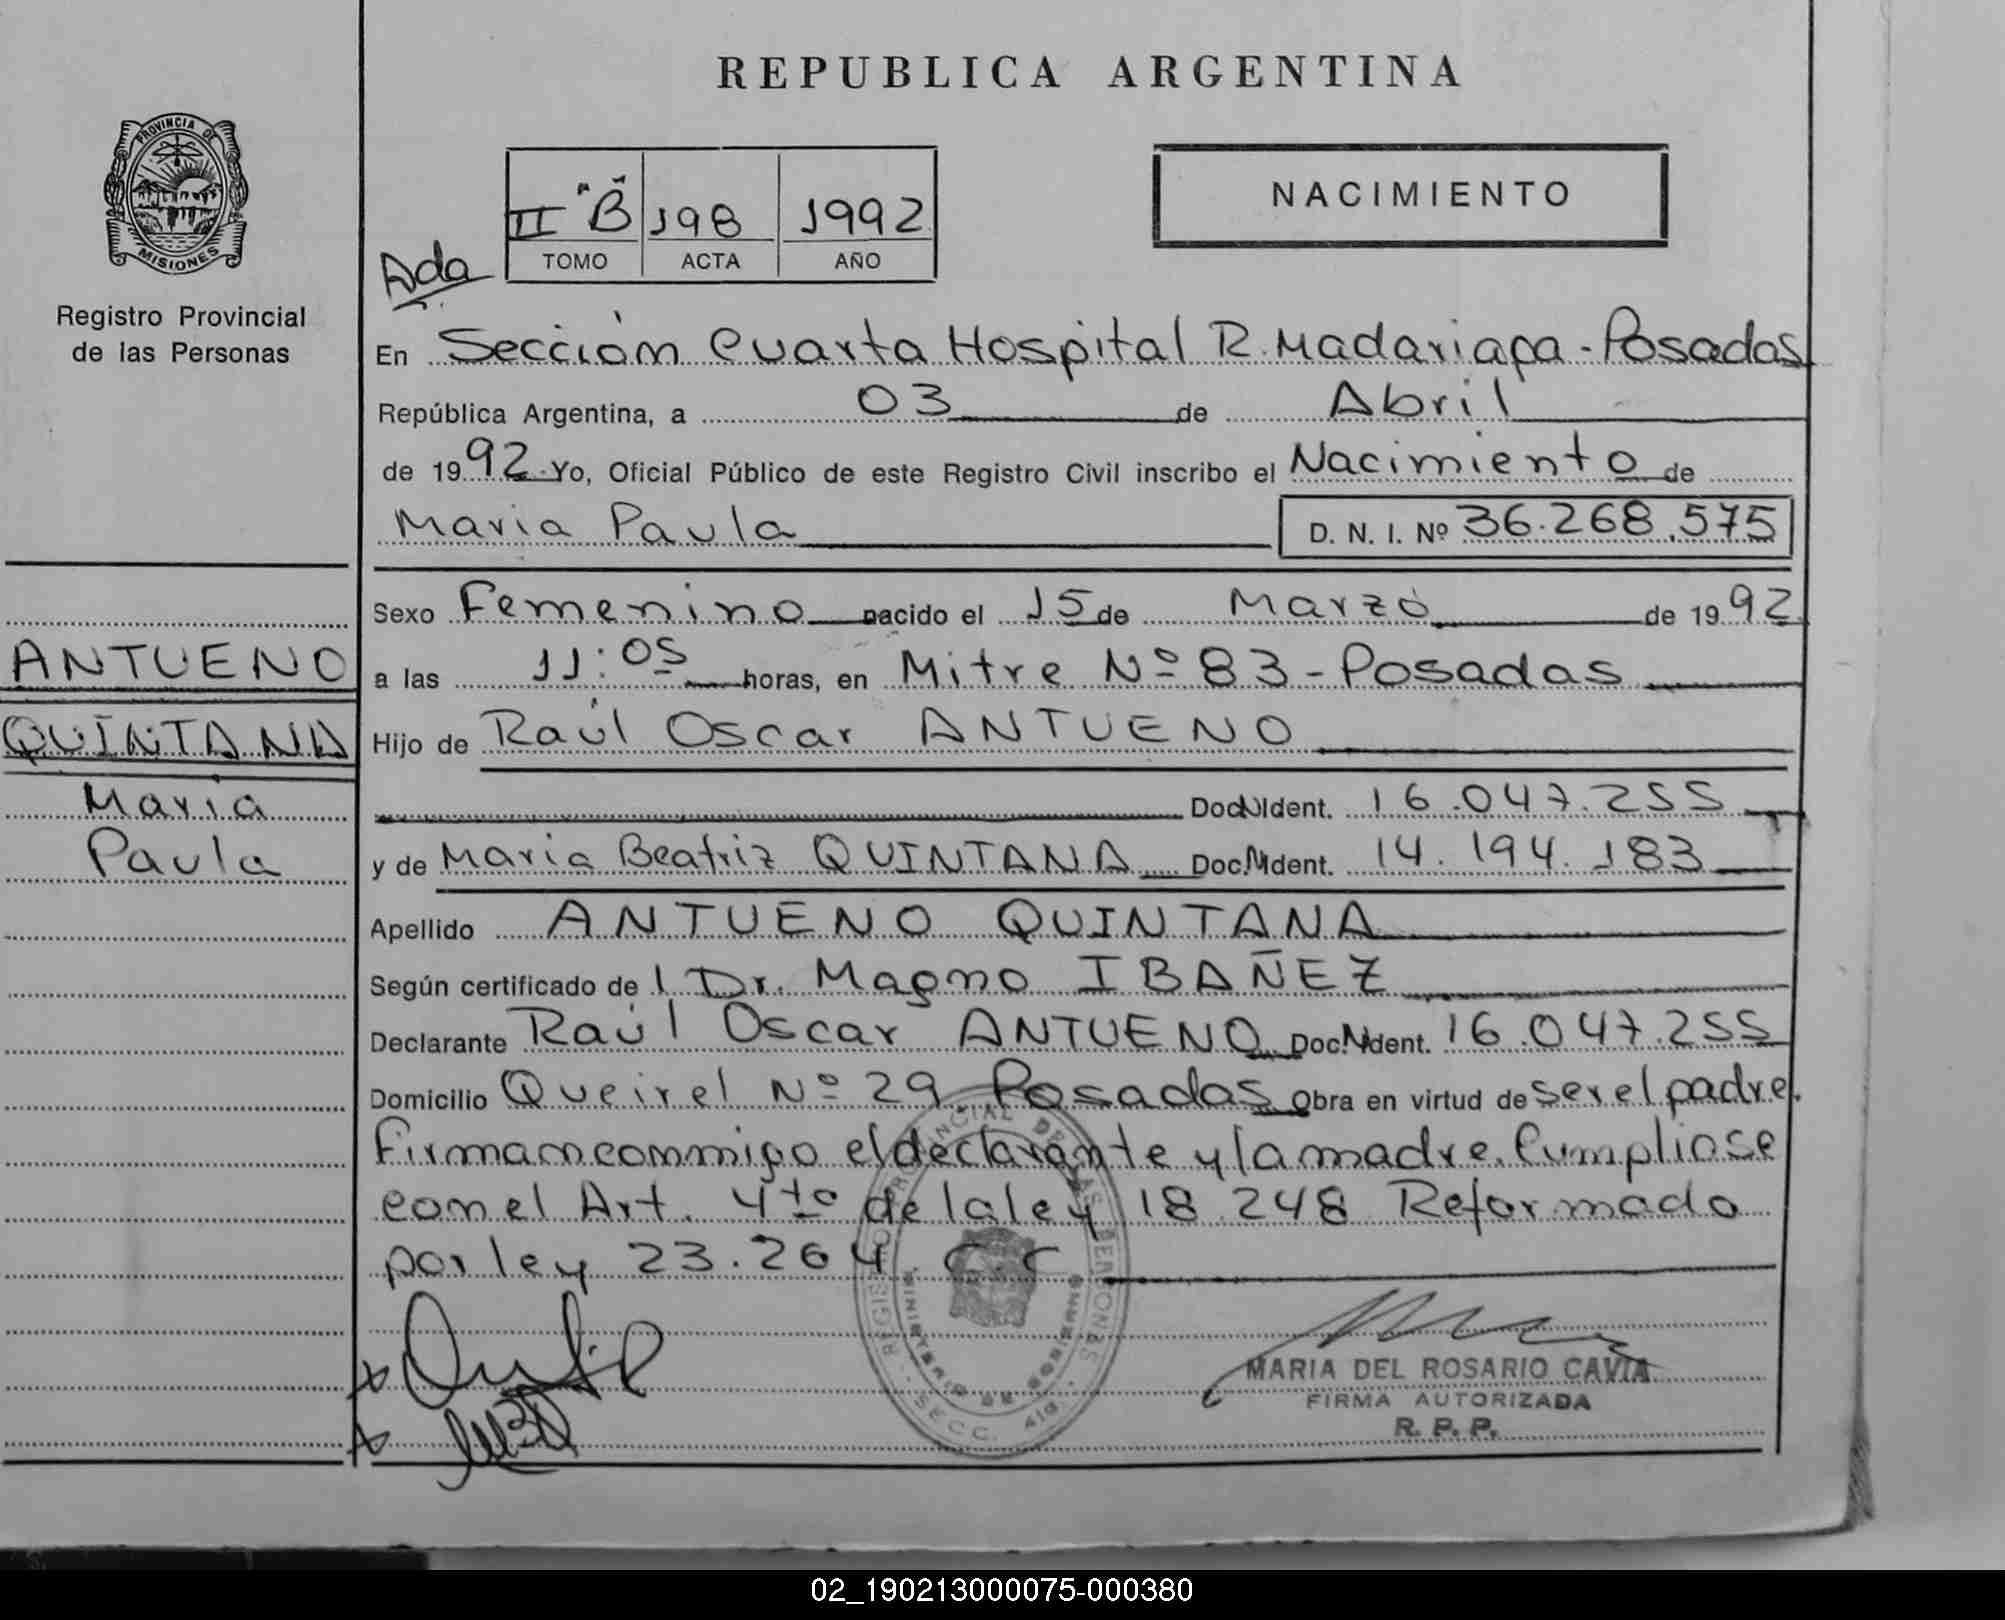 REPUBLICA ARGENTINA
PROVINCIA DE
MISIONES
Registro Provincial
de las Personas
II "B" 198 1992
TOMO ACTA AÑO
NACIMIENTO
Ada
En Sección Cuarta Hospital R. Madariaga - Posadas
República Argentina, a 03 de Abril
de 1992 Yo, Oficial Público de este Registro Civil inscribo el Nacimiento de
Maria Paula D. N. I. Nº 36.268.575
Sexo Femenino nacido el 15 de Marzo de 1992
a las 11:05 horas, en Mitre Nº 83 - Posadas
Hijo de Raúl Oscar ANTUENO
Doc. N. Ident. 16.047.255
y de Maria Beatriz QUINTANA Doc. N. Ident. 14.194.183
Apellido ANTUENO QUINTANA
Según certificado de l Dr. Magno IBAÑEZ
Declarante Raúl Oscar ANTUENO Doc. N. Ident. 16.047.255
Domicilio Queirel Nº 29 Posadas Obra en virtud de ser el padre.
Firman conmigo el declarante y la madre. Cumpliose
con el Art. 4to de la ley 18.248 Reformado
por ley 23.264 C.C
ANTUENO
QUINTANA
Maria
Paula
REGISTRO PROVINCIAL DE LAS PERSONAS
MINISTERIO DE GOBIERNO
SECC. 4ta.
MARIA DEL ROSARIO CAVIA
FIRMA AUTORIZADA
R. P. P.
02_190213000075-000380